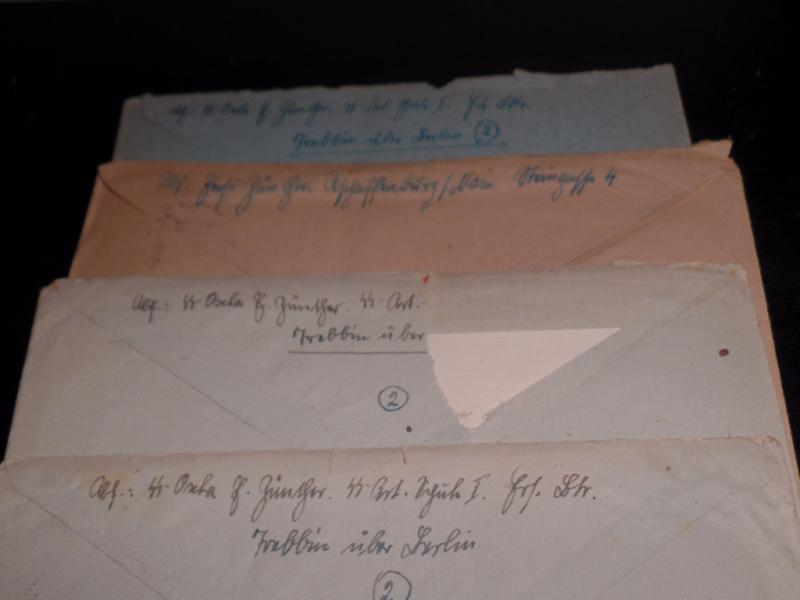 Abs. ᛋᛋ Oscha H. Günther, ᛋᛋ Art. Schule I. Ers. Bttr.
Trebbin über Berlin 2
Abs. Günther, Aschaffenburg/Main Steingasse 4
Abs.: ᛋᛋ Oscha H. Günther. ᛋᛋ Art.
Trebbin über
2
Abs.: ᛋᛋ Oscha H. Günther. ᛋᛋ Art. Schule I. Ers. Btr.
Trebbin über Berlin
2